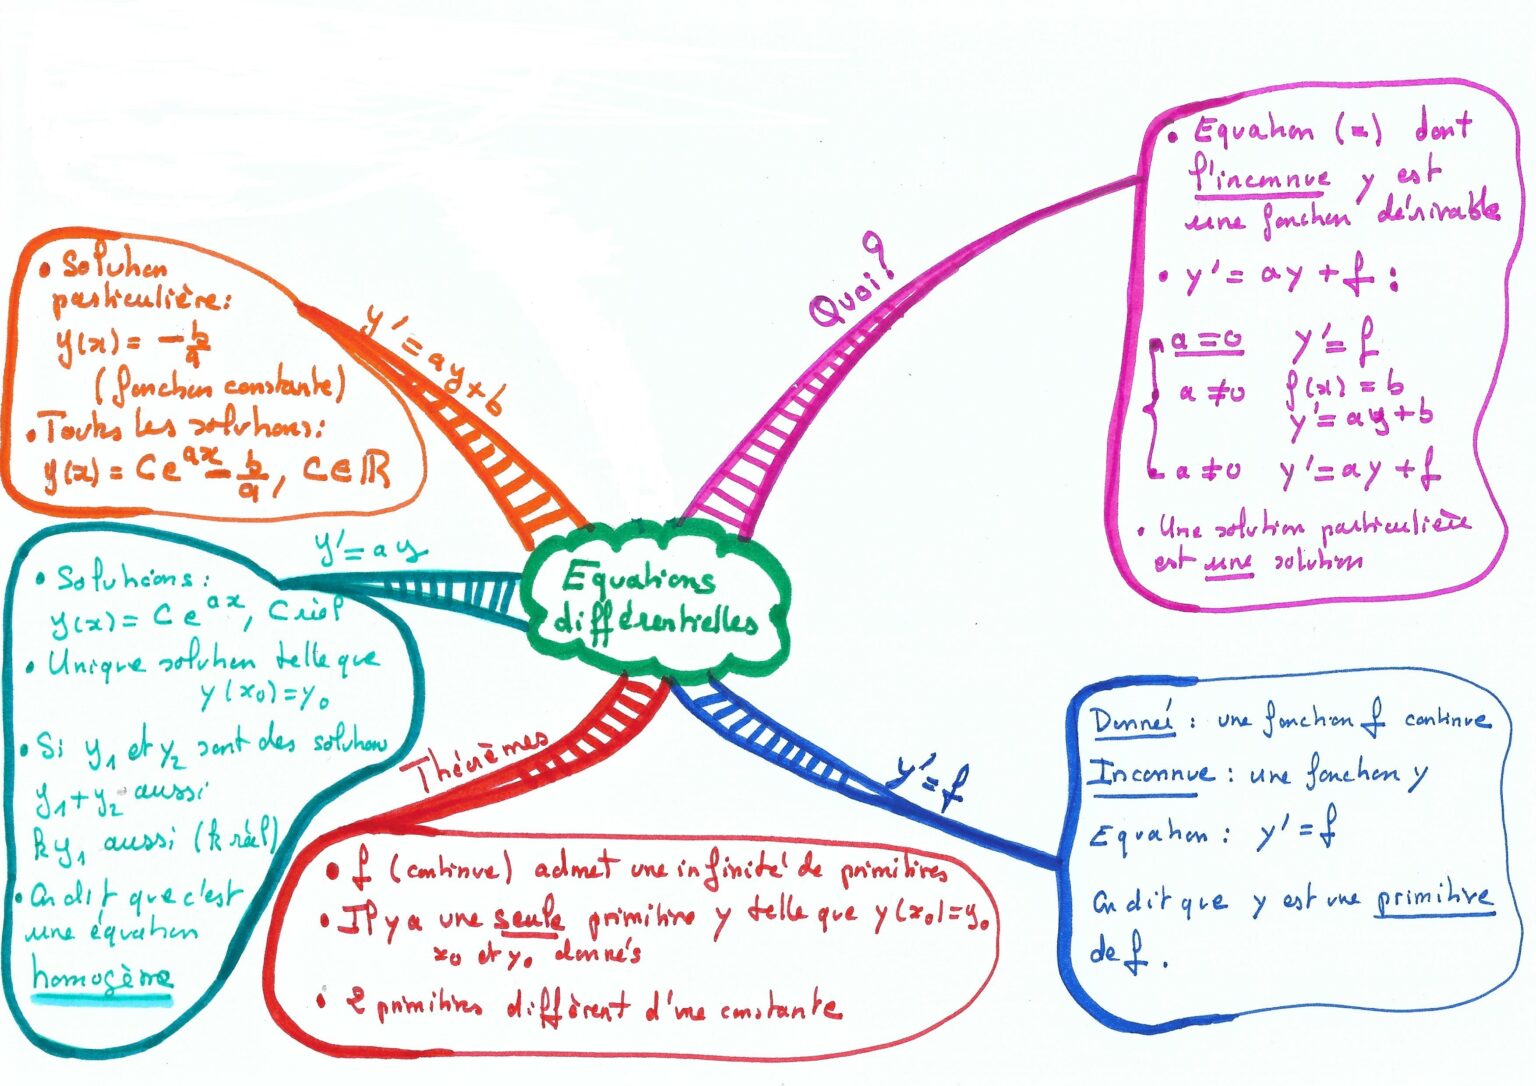 Equations
différentielles
Quoi?
• Equation (=) dont
l'inconnue y est
une fonction dérivable
• y' = ay + f :
a = 0 y' = f
a ≠ 0 f(x) = b
y' = ay + b
a ≠ 0 y' = ay + f
• Une solution particulière
est une solution
y' = f
Donnée : une fonction f continue
Inconnue : une fonction y
Equation : y' = f
On dit que y est une primitive
de f.
Théorèmes
• f (continue) admet une infinité de primitives
• Il y a une seule primitive y telle que y(x₀) = y₀
x₀ et y₀ donnés
• 2 primitives diffèrent d'une constante
y' = ay
• Solutions :
y(x) = C e^{ax}, C réel
• Unique solution telle que
y(x₀) = y₀
• Si y₁ et y₂ sont des solution
y₁ + y₂ aussi
k y₁ aussi (k réel)
• On dit que c'est
une équation
homogène
y' = ay + b
• Solution
particulière :
y(x) = -b/a
(fonction constante)
• Toutes les solutions :
y(x) = C e^{ax} - b/a, C ∈ ℝ